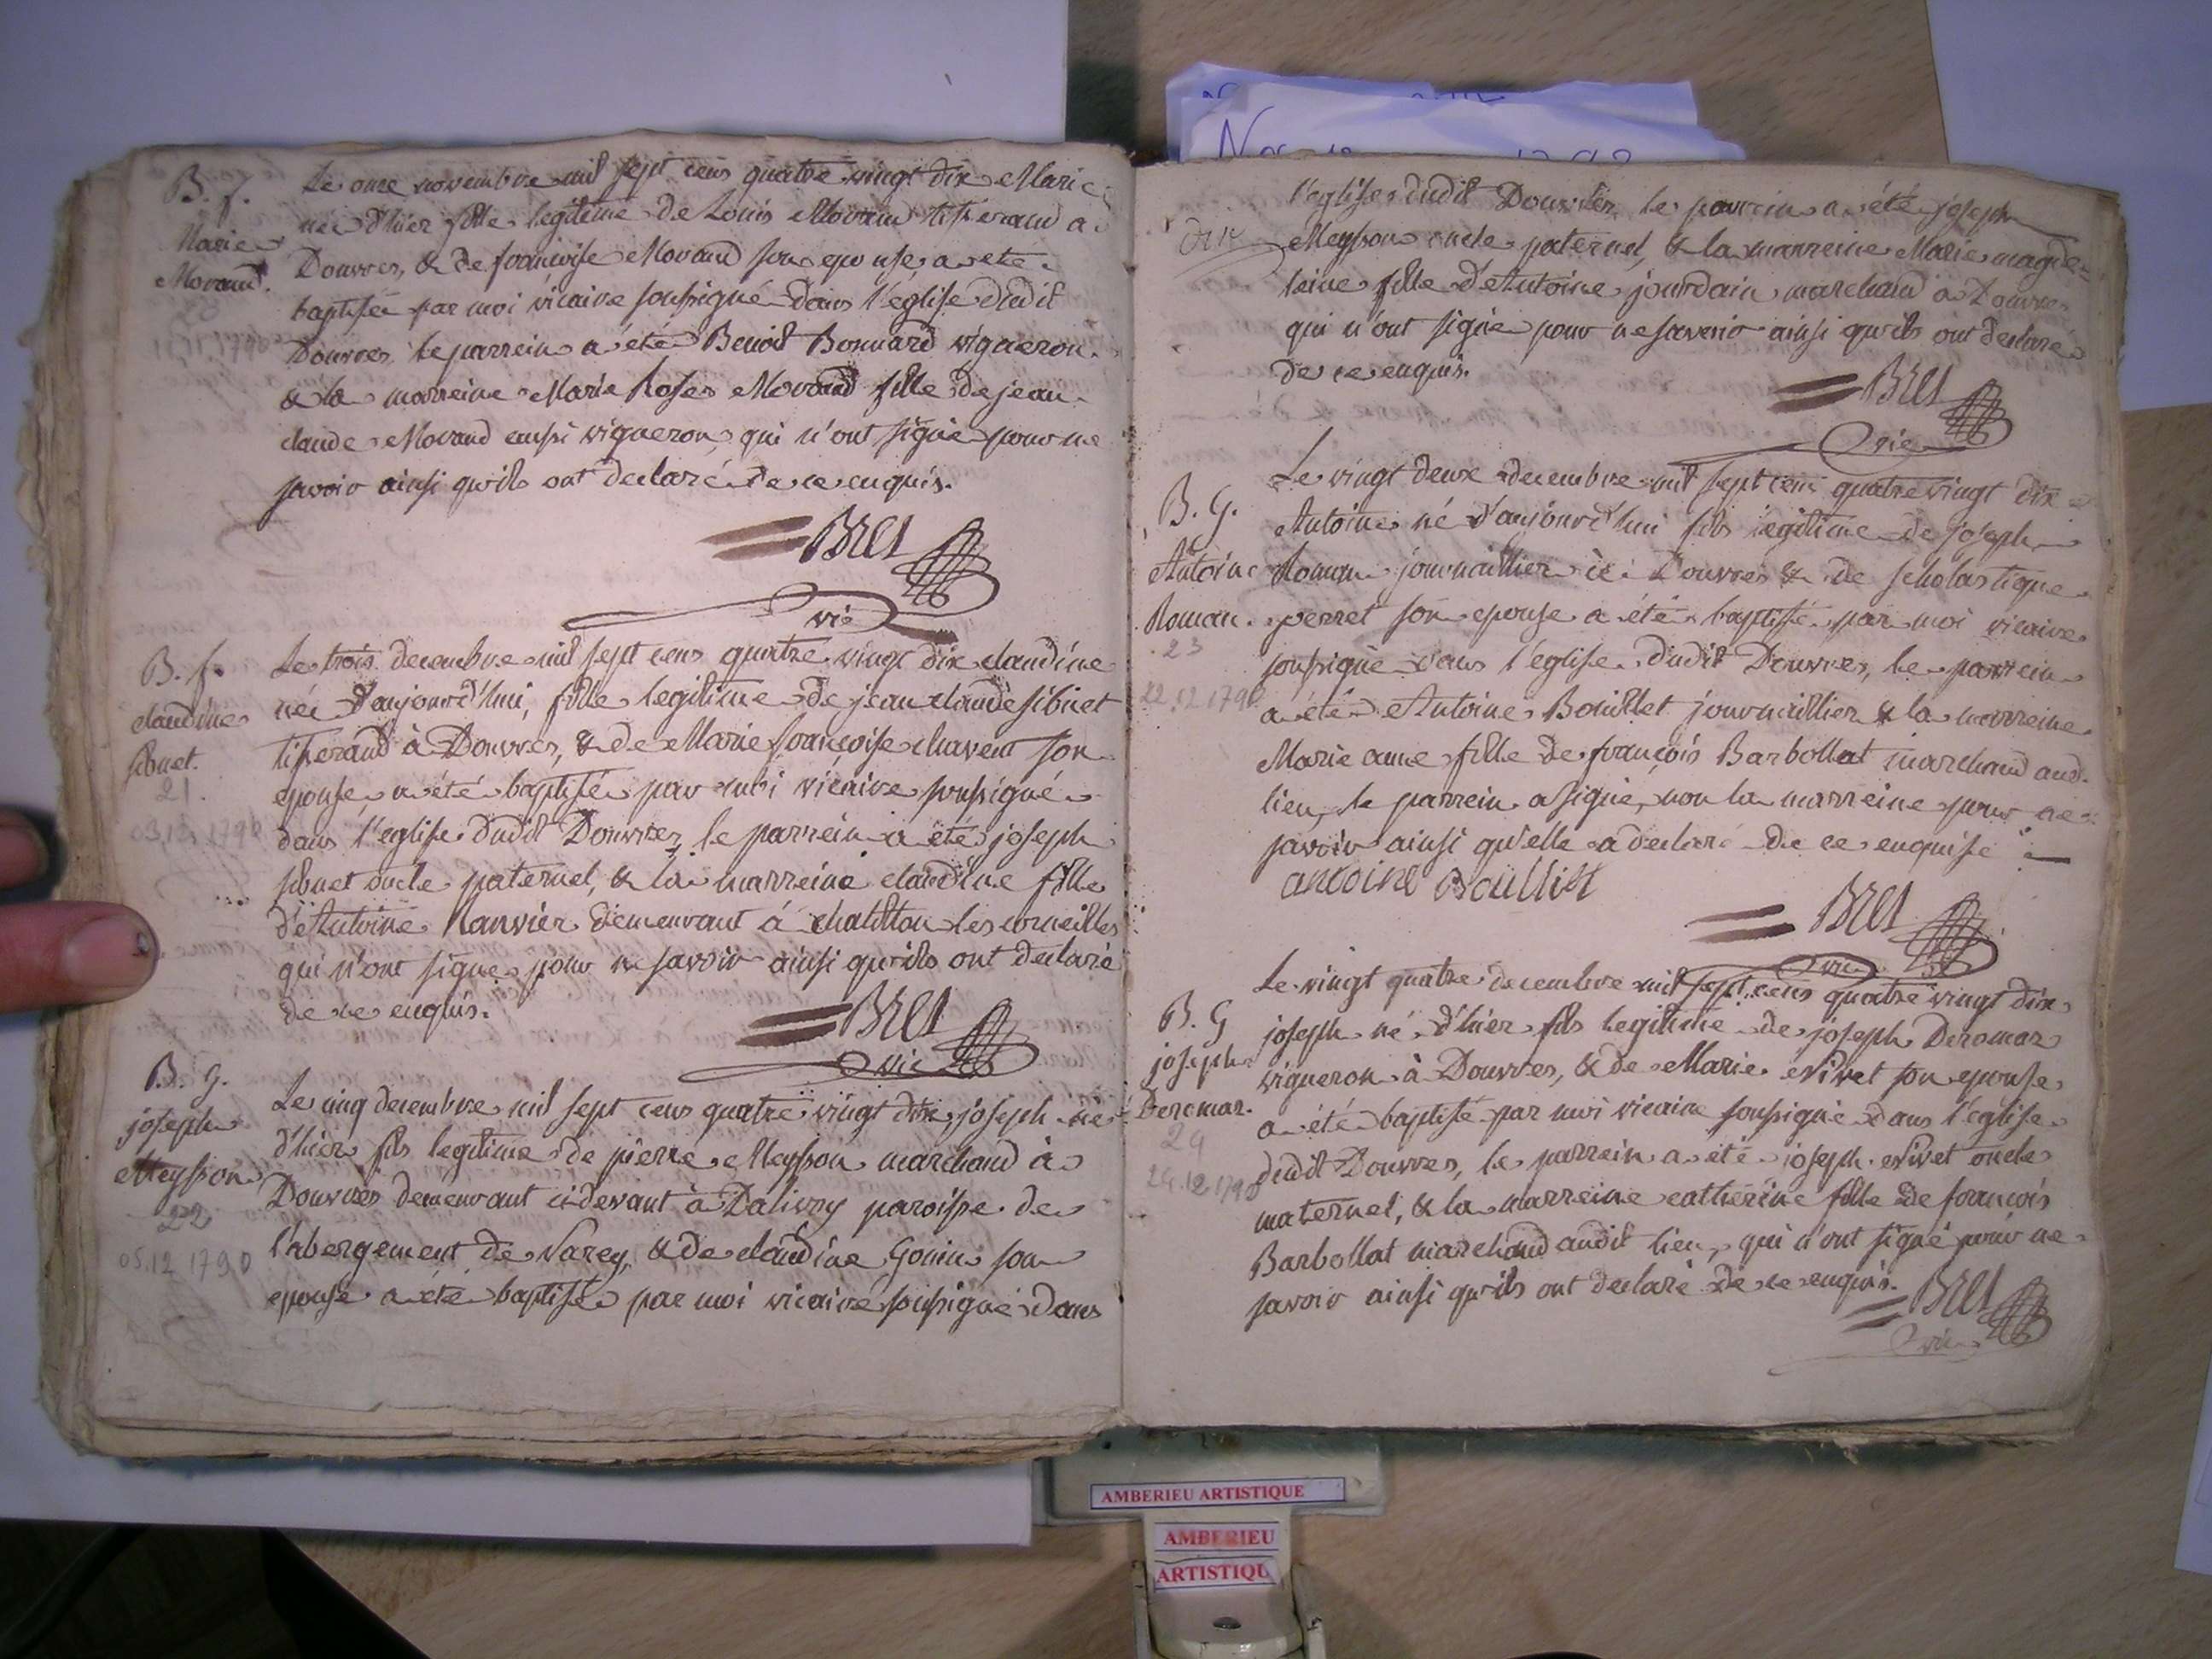 B. f.
Marie
Morand.
20
Le onze novembre mil sept cens quatre vingt dix Marie
née d'hier fille legitime de Louis Morand tisserand a
Douvres, & de françoise Morand son epouse, a été
baptisée par moi vicaire soussigné dans l'eglise dudit
Douvres, le parrein a été Benoit Bonnard vigneron
& la marreine Marie Rose Morand fille de jean
claude Morand aussi vigneron, qui n'ont signé pour ne
savoir ainsi qu'ils ont declaré de ce enquis.
Bret
vic
B. f.
claudine
sibuet.
21.
03.12.1790
Le trois decembre mil sept cens quatre vingt dix claudine
née d'aujourd'hui, fille legitime de jean claude sibuet
tisserand à Douvres, & de Marie françoise chavent son
epouse a été baptisée par moi vicaire soussigné
dans l'eglise dudit Douvres, le parrein a été joseph
sibuet oncle paternel, & la marreine claudine fille
d'Antoine Ranvier demeurant à chatillon les corneilles
qui n'ont signé pour ne savoir ainsi qu'ils ont declaré
de ce enquis.
Bret
vic
B. G.
joseph
Meysson
22
05.12 1790
Le cinq decembre mil sept cens quatre vingt dix joseph né
d'hier fils legitime de pierre Meysson marchand à
Douvres demeurant cidevant à Dalivoy paroisse de
l'abergement de Varey, & de claudine Gonin son
epouse a été baptisé par moi vicaire soussigné dans
dix
l'eglise dudit Douvres, le parrein a été joseph
Meysson oncle paternel, & la marreine Marie magde-
leine fille d'Antoine jourdain marchand à Douvres
qui n'ont signé pour ne savoir ainsi qu'ils ont declaré
de ce enquis.
Bret
vic
B. G.
Antoine
Roman.
23
22.12 1790
Le vingt deux decembre mil sept cens quatre vingt dix
Antoine né d'aujourd'hui fils legitime de joseph
Roman journaillier à Douvres & de scholastique
perret son epouse a été baptisé par moi vicaire
soussigné dans l'eglise dudit Douvres, le parrein
a été Antoine Bouillet journaillier & la marreine
Marie anne fille de françois Barbollat marchand aud.
lieu, le parrein a signé, non la marreine pour ne
savoir ainsi qu'elle a declaré de ce enquise
antoine Boullist
Bret
vic
B. G
joseph
Deromar.
24
24.12 1790
Le vingt quatre decembre mil sept cens quatre vingt dix
joseph né d'hier fils legitime de joseph Deromar
vigneron à Douvres, & de Marie esivet son epouse
a été baptisé par moi vicaire soussigné dans l'eglise
dudit Douvres, le parrein a été joseph esivet oncle
maternel, & la marreine catherine fille de françois
Barbollat marchand audit lieu, qui n'ont signé pour ne
savoir ainsi qu'ils ont declaré de ce enquis.
Bret
vic
AMBERIEU ARTISTIQUE
AMBERIEU
ARTISTIQU